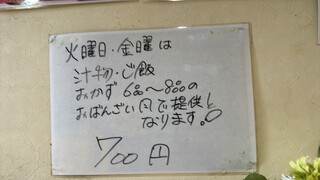 火曜日・金曜は
汁物・ご飯
おかず 6:00〜8:00の
おばんざい 円で提供と
なります。
700円